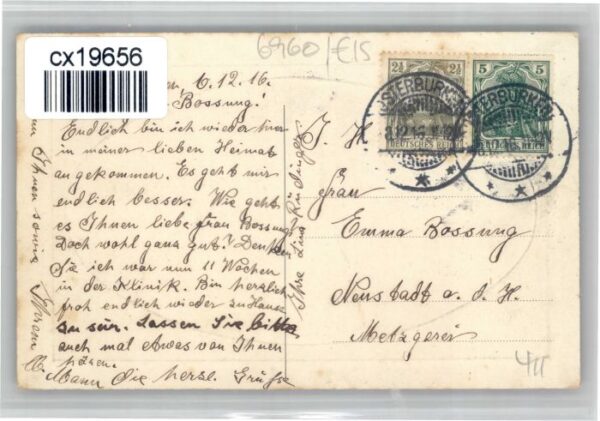 cx19656
6960/€15
6.12.16.
Bossung!
Endlich bin ich wieder hier
in meiner lieben Heimat
angekommen. Es geht mir
endlich besser. Wie geht
es Ihnen liebe Frau Bossung
Doch wohl ganz gut? Denken
Sie ich war nun 11 Wochen
in der Klinik. Bin herzlich
froh endlich wieder zu Hause
zu sein. Lassen Sie bitte
auch mal Etwas von Ihnen
hören.
Mann die herzl. Grüße
Ihnen sowie Ihrem
Ihre Lina Rüdinger
2½ 2½
DEUTSCHES REICH
5 5
DEUTSCHES REICH
OSTERBURKEN
OSTERBURKEN
Frau
Emma Bossung
Neustadt a. d. H.
Metzgerei